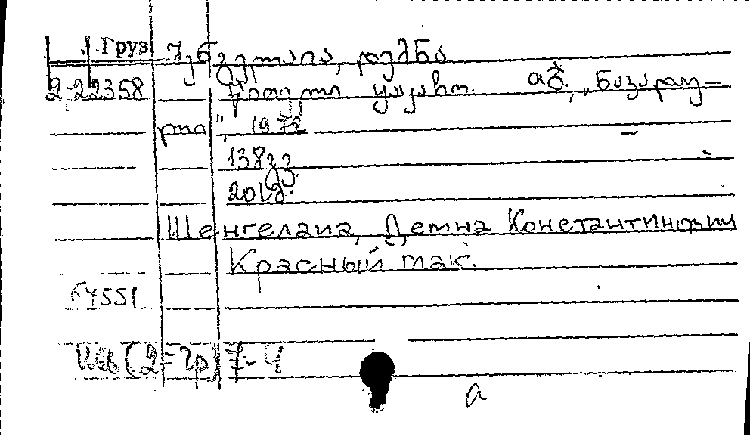 Груз
შენგელაია, დემნა
2-22358 წითელი ყაყაჩო. თბ., „ნაკადუ-
ლი", 1972
138 გვ.
20 კ.
Шенгелаиа, Демна Константинович
Красный мак.
64551
Ш6(2=Гр)7-4
а